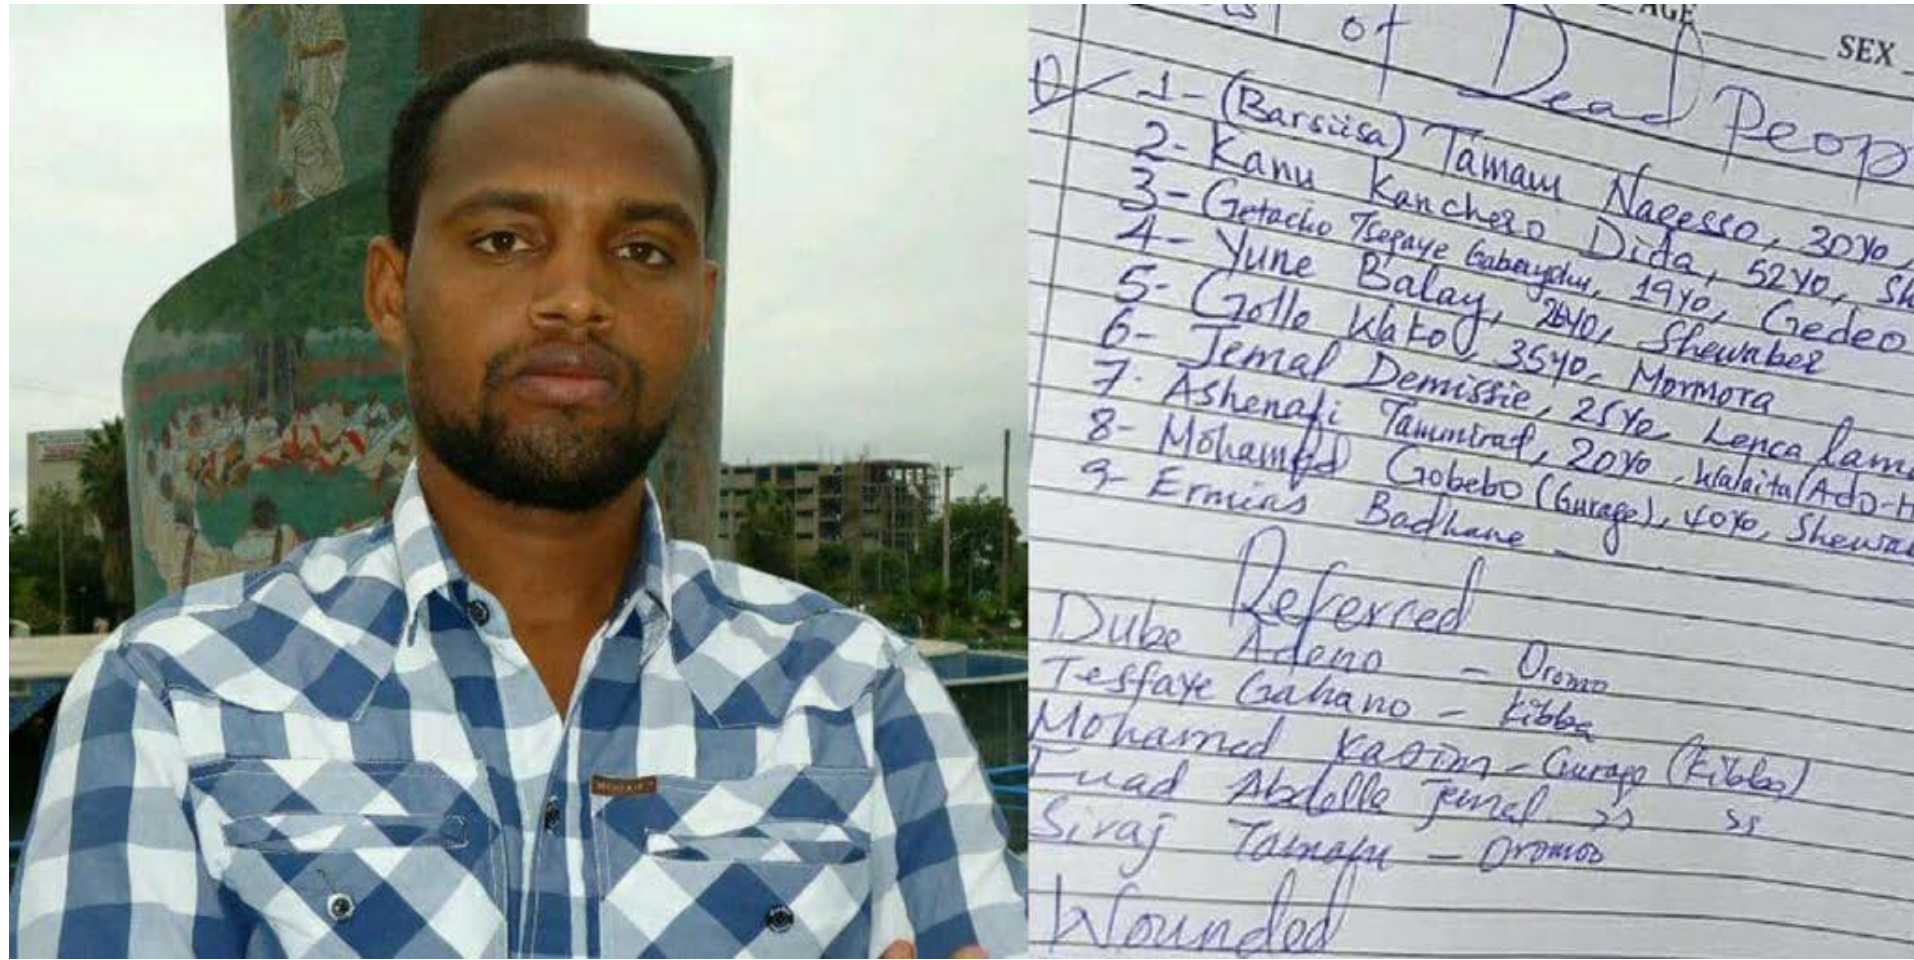 AGE
SEX
List of Dead Peop
1- (Barsiisa) Tamam Nagesso, 30yo,
2- Kanu Kanchero Dida, 52yo, Sh
3- Getacho Tsegaye 19yo, Gedeo
4- Yune Balay, 26yo, Shewaber
5- Gollo Wako, 35yo, Mormora
6- Jemal Demissie, 25yo, Lenca lama
7- Ashenafi Tammirat, 20yo, Walaita/Ado-H
8- Mohammed Gobebo (Gurage), 40yo, Shewa
9- Ermias Badhane
Referred
Dube Adeno - Oromo
Tesfaye Gahano - Kibba
Mohamed Kasim - Gurage (Kibba)
Fuad Abdella Jemal >> >>
Siraj Tamam - Oromoo
Wounded